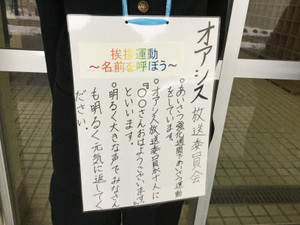 オアシス放送委員会
挨拶運動
～名前を呼ぼう～
○あいさつ強化週間であいさつ運動
をしています。
○オアシス放送委員が十人に
『○○さんおはようございます。』
といいます。
○明るく大きな声でみなさん
も明るく元気に返してく
ださい。